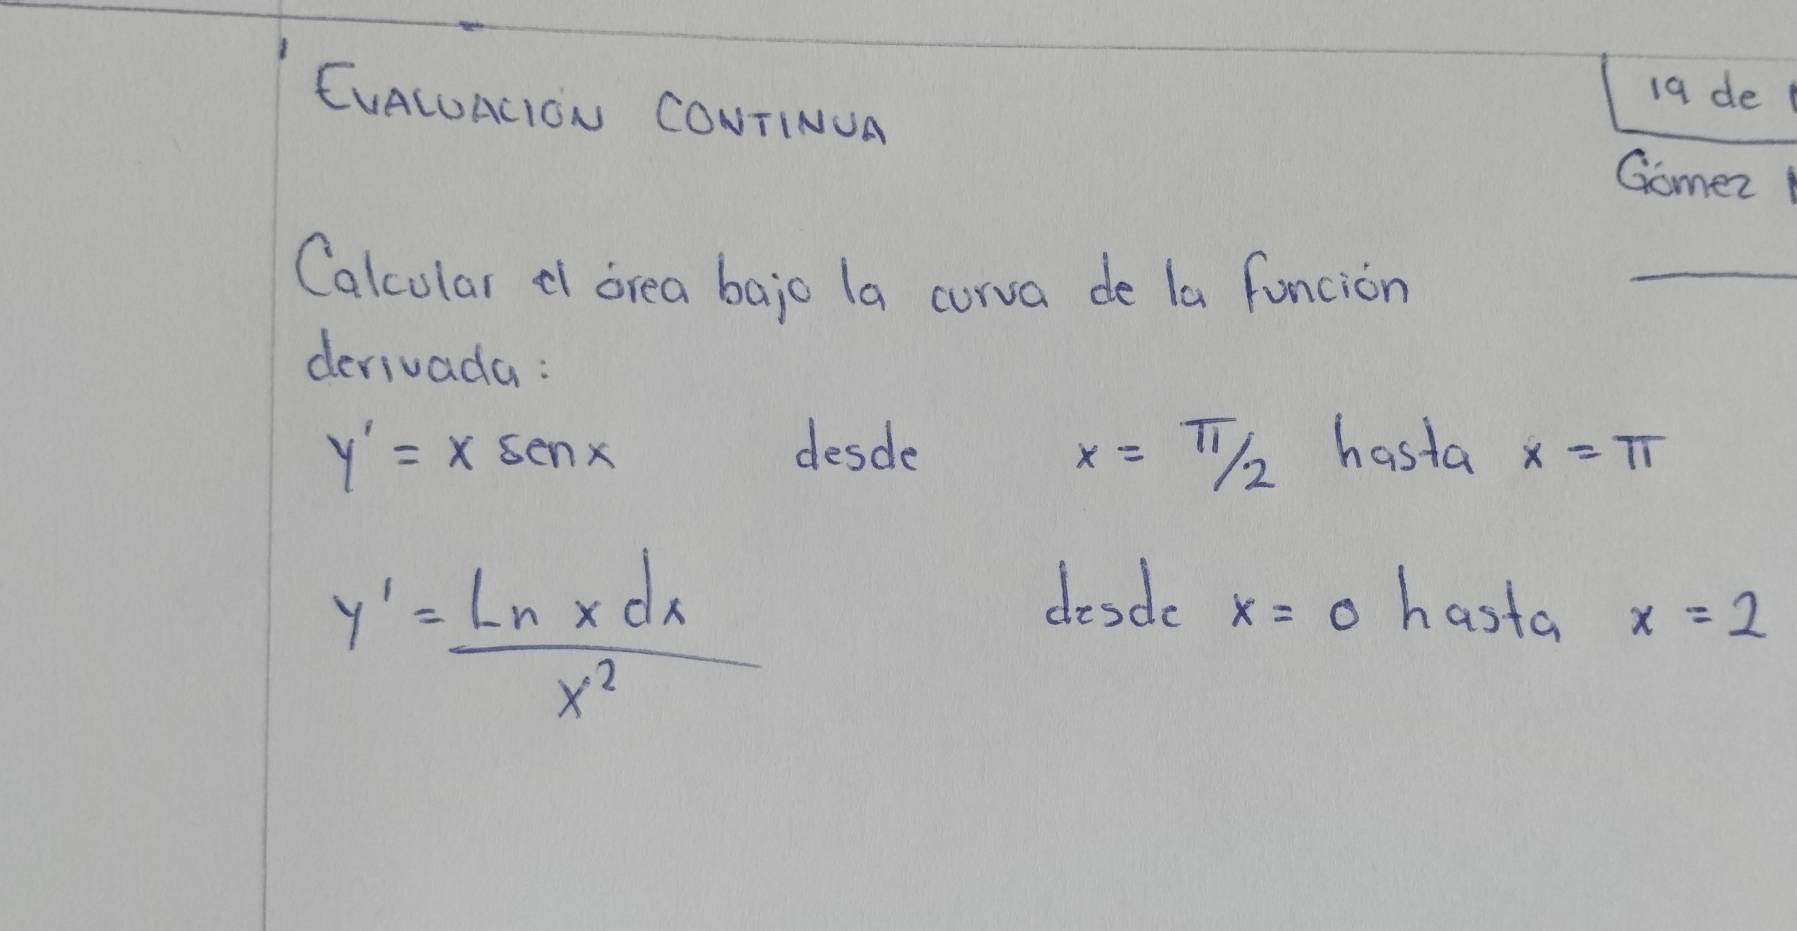 EVALUACIÓN CONTINUA
19 de
Gómez
Calcular el área bajo la curva de la función
derivada:
y' = x sen x desde x = π/2 hasta x = π
y' = Ln x dx / x² desde x = 0 hasta x = 2